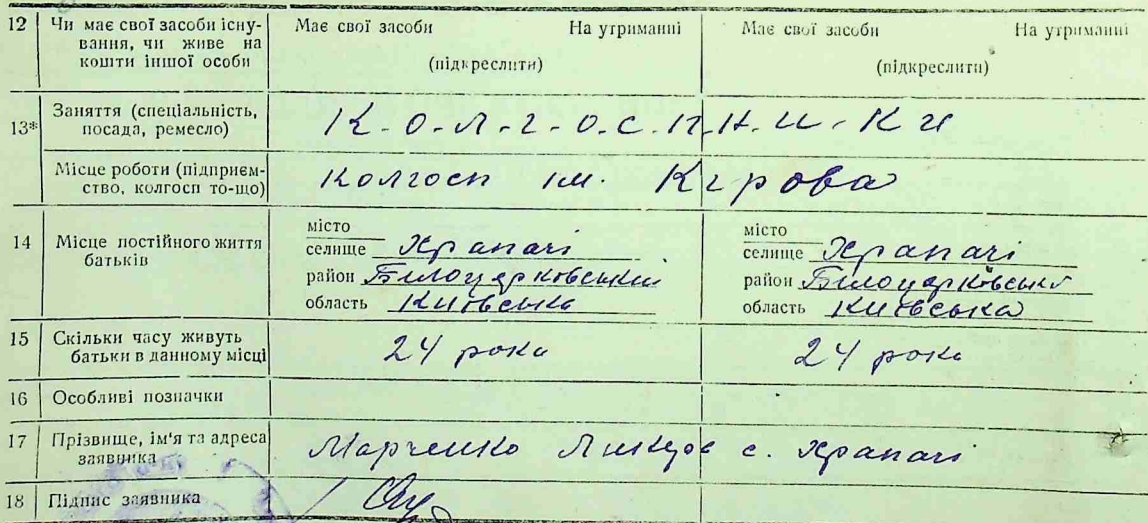 12 Чи має свої засоби існу-
вання, чи живе на
кошти іншої особи
Має свої засоби На утриманні
(підкреслити)
Має свої засоби На утриманні
(підкреслити)
13* Заняття (спеціальність,
посада, ремесло)
К-о-л-г-о-с-п-н-и-ки
Місце роботи (підприєм-
ство, колгосп то-що)
Колгосп им. Кірова
14 Місце постійного життя
батьків
місто
селище Храпачі
район Білоцерківський
область Київська
місто
селище Храпачі
район Білоцерківськ
область Київська
15 Скільки часу живуть
батьки в данному місці
24 рока
24 рока
16 Особливі позначки
17 Прізвище, ім'я та адреса
заявника
Марченко с. Храпачі
18 Підпис заявника